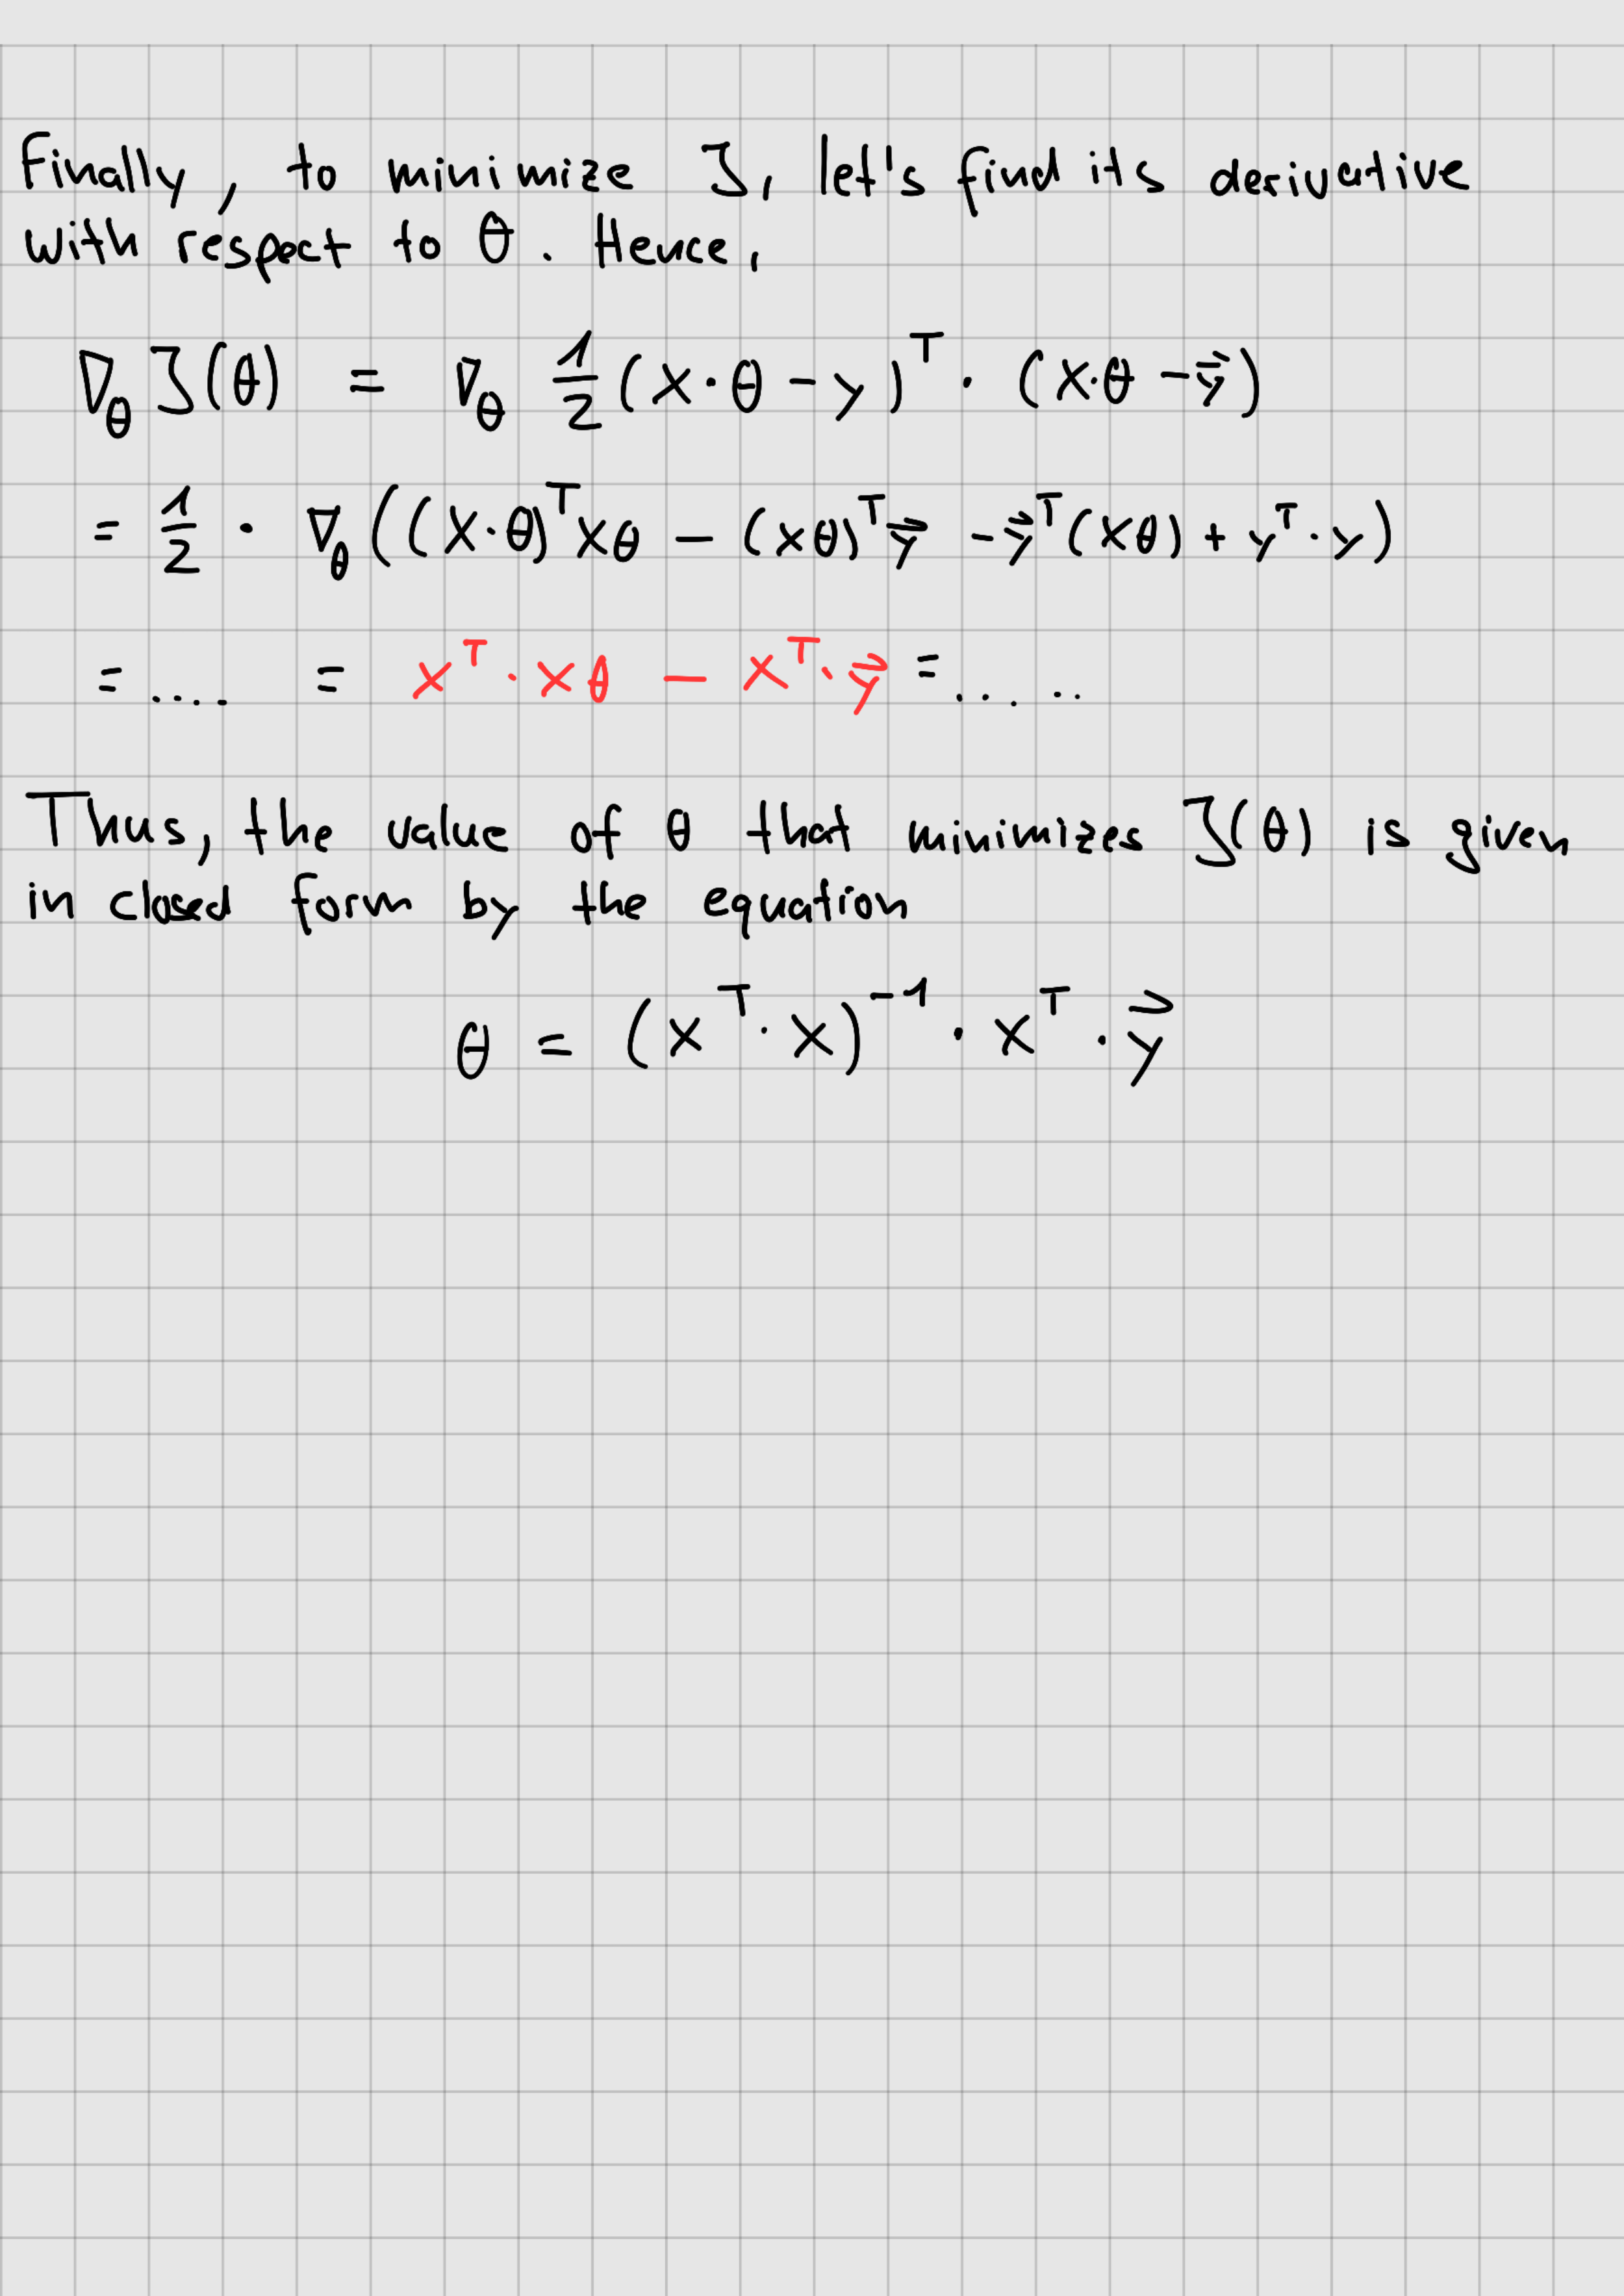 Finally, to minimize J, let's find its derivative
with respect to θ. Hence,
∇_θ J(θ) = ∇_θ 1/2 (X·θ − y)^T · (X·θ − y⃗)
= 1/2 · ∇_θ ((X·θ)^T Xθ − (Xθ)^T y⃗ − y⃗^T (Xθ) + y^T · y)
= .... = X^T · Xθ − X^T · y⃗ = .....
Thus, the value of θ that minimizes J(θ) is given
in closed form by the equation
θ = (X^T · X)^−1 · X^T · y⃗